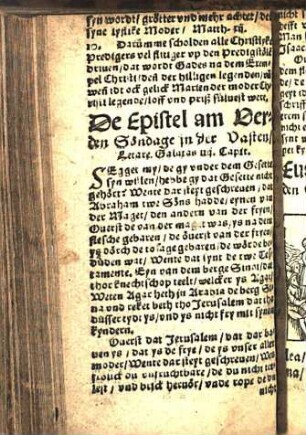 syn wordt/ grötter vnd mehr achtet/ den
syne lyslike Moder/ Matth. xij.
12. Darümme scholden alle Christlyke
Predigers vel flitiger vp den Predigtstöl
driuen/ dat word Gades na dem Exem
pel Christi/ den der hilligen legenden/ vñ
wen idt ock gelick Marien der moder Ch
risti legende/ loff vnd priß süluest were.
De Epistel am Ver-
den Söndage in der Vasten/
Letare. Galatas iiij. Capit.
SEgget my/ de gy vnder dem Gesette
syn wyllen/ hebbe gy dat Gesette nicht
gehört? Wente dar steyt geschreuen/ dat
Abraham twe Söns hadde/ eynen van
der Maget/ den andern van der fryen/
Ouerst de van der maget was/ ys na dem
flesche gebaren/ de öuerst van der fryen
ys dörch de tosage gebaren/ de wörde be
düden wat/ Wente dat synt de twe Te-
stamente. Eyn van dem berge Sinai/ dat
thor knechtschop teelt/ welcker ys Agar/
Wente Agar heth in Arabia de berg Si
na vnd reket beth tho Jerusalem dat tho
düsser tydt ys/ vnd ys nicht fry mit synen
kyndern.
Ouerst dat Jerusalem/ dat dar ba-
uen ys/ dat ys de frye/ de ys vnser aller
moder/ Wente dar steyt geschreuen/ Wes
frölick du vnfruchtbare/ de du nicht te
lest/ vnd brick heruör/ vnde rope de du
nicht